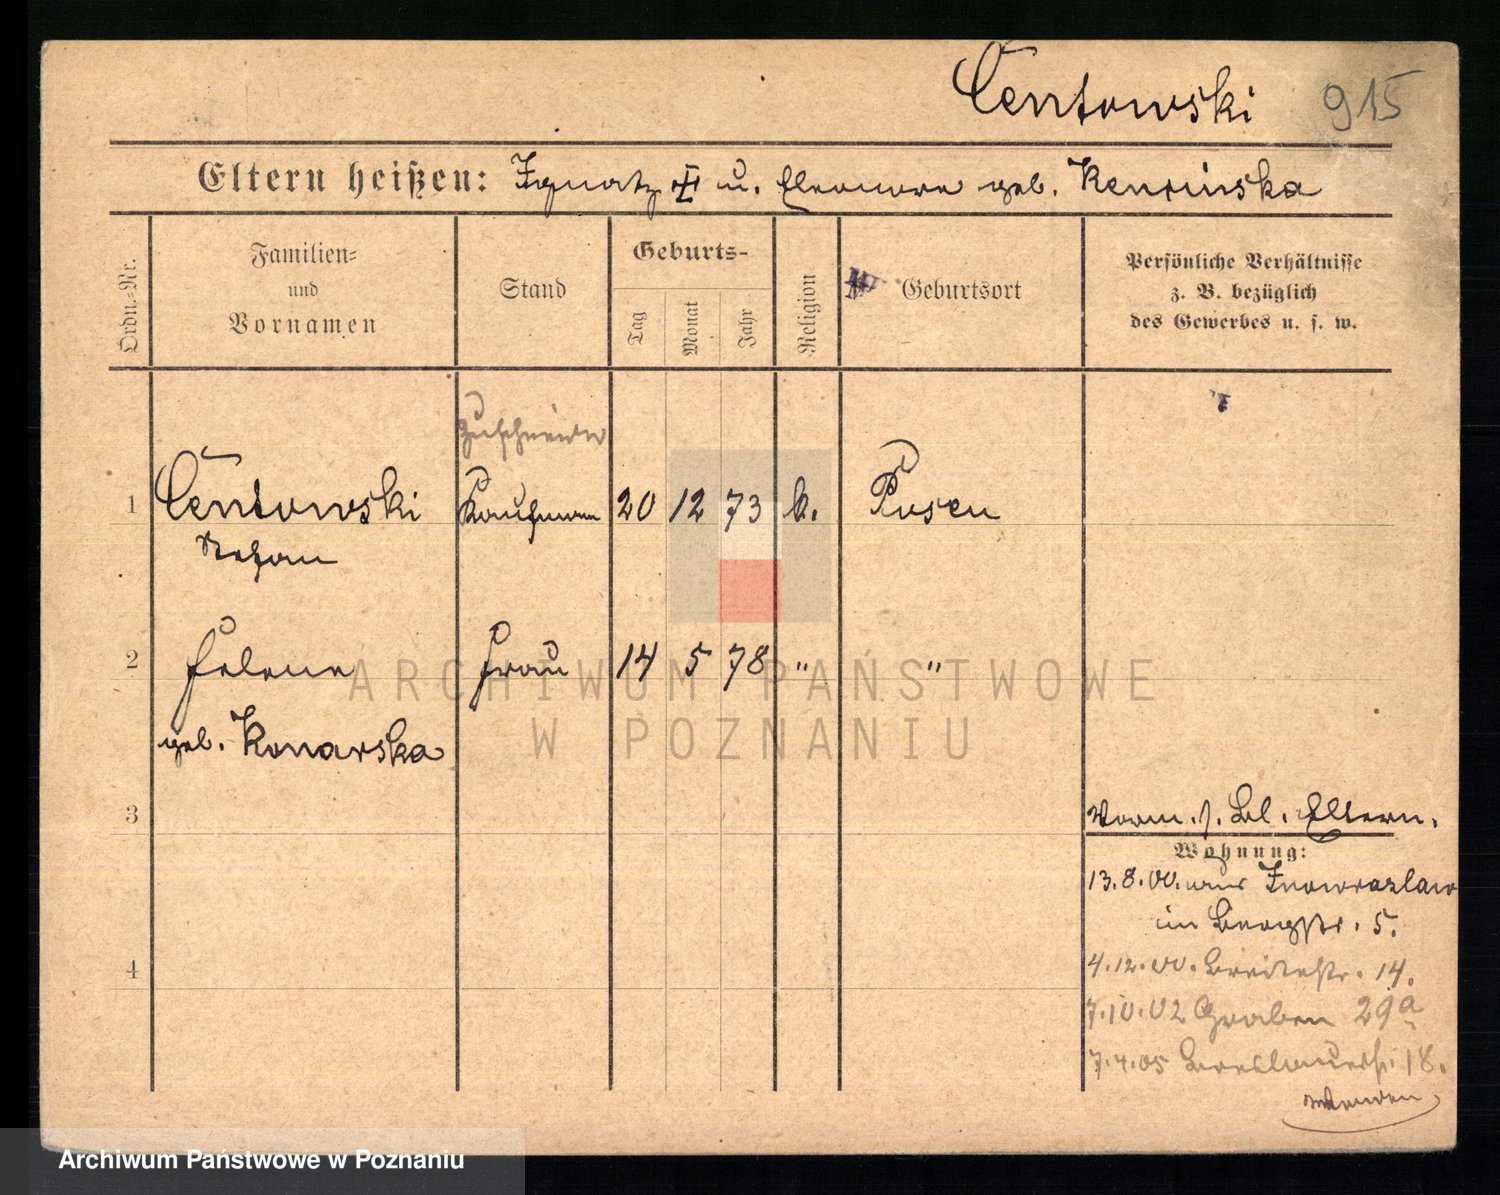 Centowski 915
Eltern heißen: Ignatz u. Eleonore geb.
Ordn.=Nr.
Familien=
und
Vornamen
Stand
Geburts-
Tag
Monat
Jahr
Religion
Geburtsort
Persönliche Verhältnisse
z. B. bezüglich
des Gewerbes u. s. w.
1 Centowski Kaufmann 20 12 73 k. Posen
Stefan
2 Helene Frau 14 5 78 " "
geb. Konarska
3
Vorm. s. Bl. Eltern.
Wohnung:
13.8.00. aus Inowrazlaw
in Bergstr. 5.
4
4.12.00. Breitestr. 14.
7.10.02 Graben 29a
7.4.05 Breslauerstr. 18.
ARCHIWUM PAŃSTWOWE
W POZNANIU
Archiwum Państwowe w Poznaniu